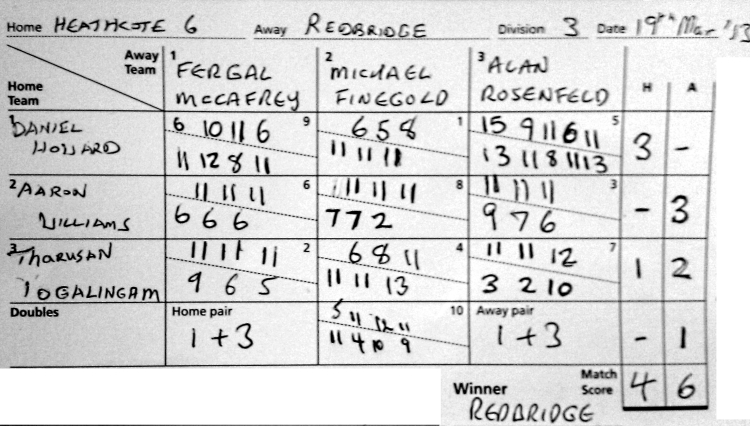 Home HEATHCOTE 6 Away REDBRIDGE Division 3 Date 19th Mar '13
Away Team
Home Team
1 FERGAL McCAFREY
2 MICHAEL FINEGOLD
3 ALAN ROSENFELD
H A
1 DANIEL HOWARD
6 10 11 6 9
11 12 8 11
6 5 8 1
11 11 11
15 9 11 6 11 5
13 11 8 11 13
3 -
2 AARON WILLIAMS
11 11 11 6
6 6 6
11 11 11 8
7 7 2
11 11 11 3
9 7 6
- 3
3 THARUSAN YOGALINGAM
11 11 11 2
9 6 5
6 8 11 4
11 11 13
11 11 12 7
3 2 10
1 2
Doubles
Home pair
1+3
5 11 12 11 10
11 4 10 9
Away pair
1+3
- 1
Winner REDBRIDGE
Match Score 4 6